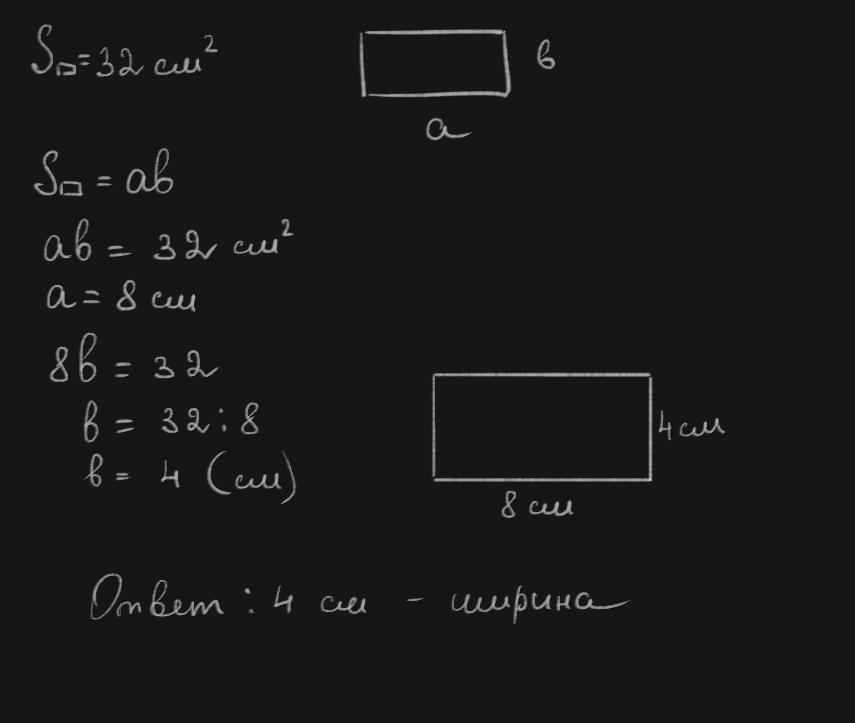 S▭ = 32 см²
в
a
S▭ = ab
ab = 32 см²
a = 8 см
8b = 32
b = 32 : 8
b = 4 (см)
4 см
8 см
Ответ : 4 см - ширина